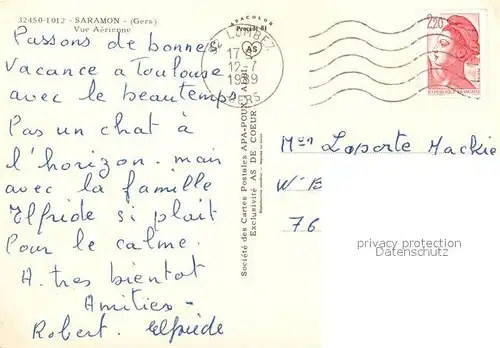 32450-1012 - SARAMON - (Gers)
Vue Aérienne
Passons de bonnes
Vacance a Toulouse
avec le beautemps
Pas un chat à
l'horizon. mais
avec la famille
Elfride si plait
Pour le calme.
A. tres bientot
Amities -
Robert. Elfriede
APACOLOR
Procédé 81
AS
LOMBEZ
17
12-7
1989
GERS
Société des Cartes Postales APA-POUX - ALBI
Exclusivité AS DE COEUR
2,20
REPUBLIQUE FRANCAISE
Laporte Mackie
76
privacy protection
VDOMAINS GmbH